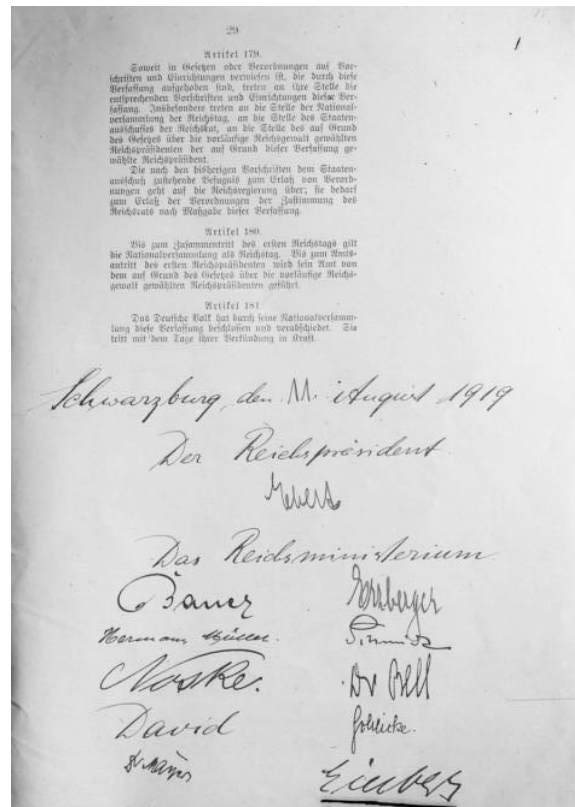 29
Artikel 179.
Soweit in Gesetzen oder Verordnungen auf Vor-
schriften und Einrichtungen verwiesen ist, die durch diese
Verfassung aufgehoben sind, treten an ihre Stelle die
entsprechenden Vorschriften und Einrichtungen dieser Ver-
fassung. Insbesondere treten an die Stelle der National-
versammlung der Reichstag, an die Stelle des Staaten-
ausschusses der Reichsrat, an die Stelle des auf Grund
des Gesetzes über die vorläufige Reichsgewalt gewählten
Reichspräsidenten der auf Grund dieser Verfassung ge-
wählte Reichspräsident.
Die nach den bisherigen Vorschriften dem Staaten-
ausschuß zustehende Befugnis zum Erlaß von Verord-
nungen geht auf die Reichsregierung über; sie bedarf
zum Erlaß der Verordnungen der Zustimmung des
Reichsrats nach Maßgabe dieser Verfassung.
Artikel 180.
Bis zum Zusammentritt des ersten Reichstags gilt
die Nationalversammlung als Reichstag. Bis zum Amts-
antritt des ersten Reichspräsidenten wird sein Amt von
dem auf Grund des Gesetzes über die vorläufige Reichs-
gewalt gewählten Reichspräsidenten geführt.
Artikel 181
Das Deutsche Volk hat durch seine Nationalversamm-
lung diese Verfassung beschlossen und verabschiedet. Sie
tritt mit dem Tage ihrer Verkündung in Kraft.
Schwarzburg, den 11. August 1919
Der Reichspräsident
Ebert
Das Reichsministerium
Bauer Erzberger
Hermann Müller. Schmidt
Noske. Dr Bell
David
Dr Mayer